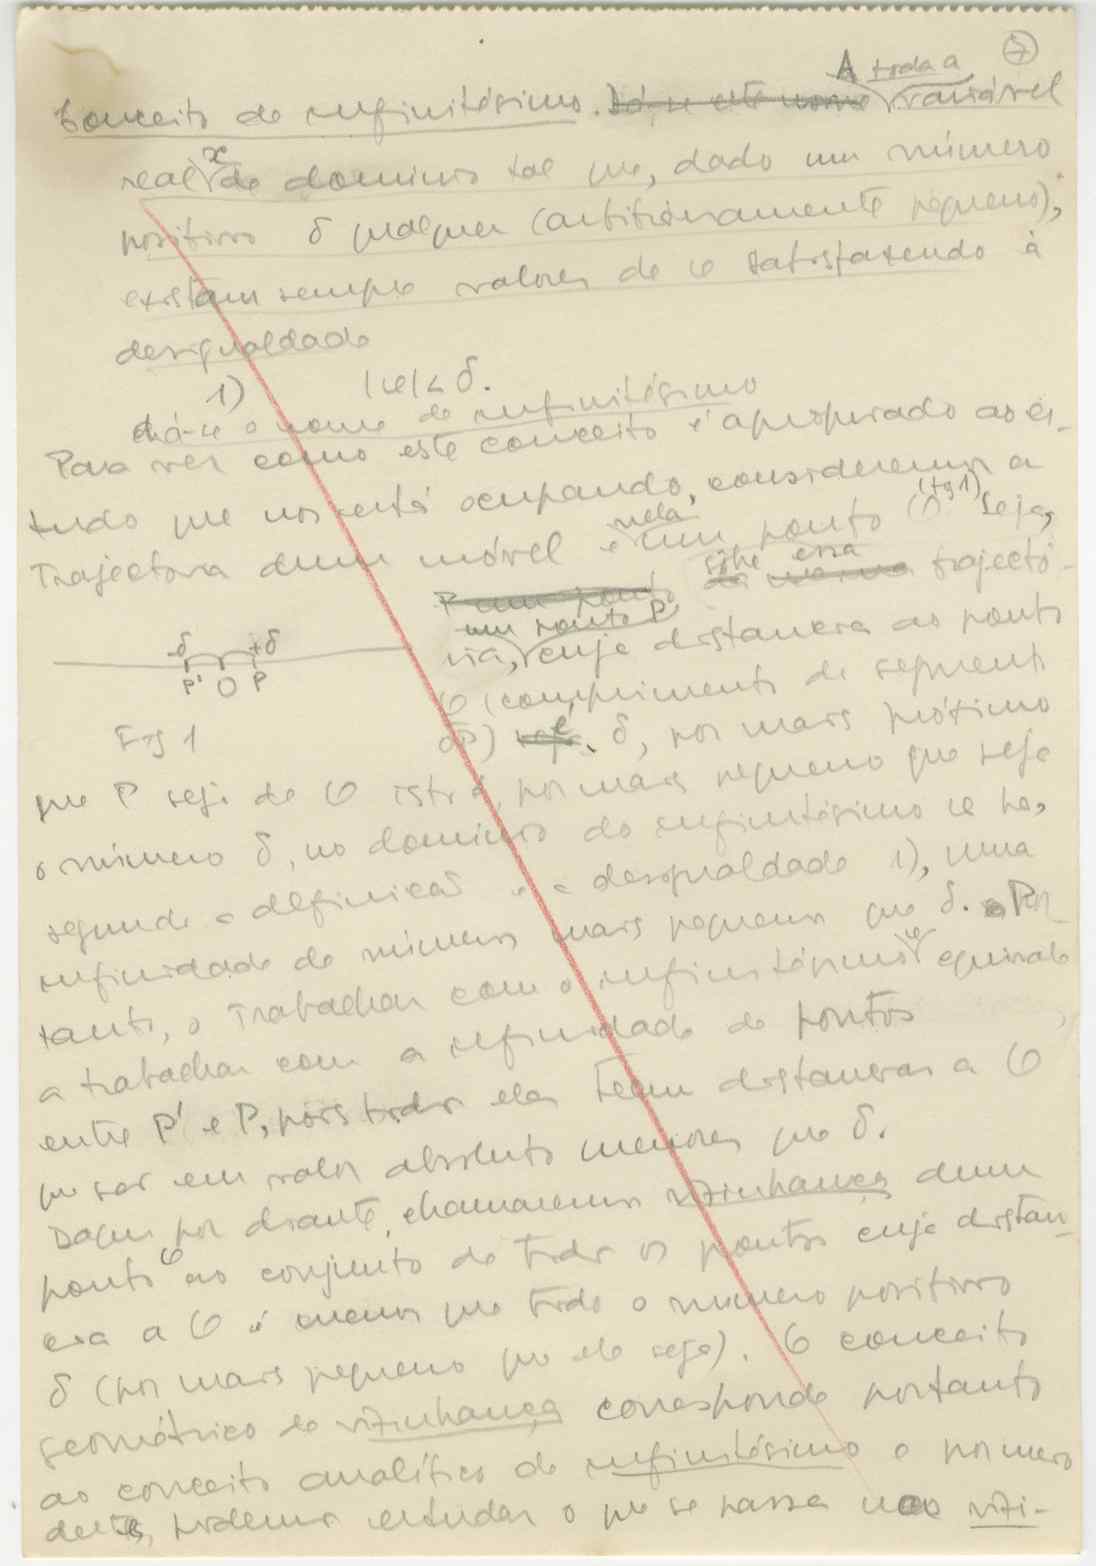 7
A toda a
Conceito de infinitésimo. Dá-se este nome variável
real x de dominio tal que, dado um número
positivo δ qualquer (arbitráriamente pequeno),
existam sempre valores de x satisfazendo à
desigualdade
1) |x| < δ.
dá-se o nome de infinitésimo
Para ver como este conceito é apropriado ao es-
tudo que nos está ocupando, consideremos a
trajectoria dum móvel e nela um ponto O (fig 1) Seja,
P um ponto sobre essa trajectó-
ria, um ponto P cuja distancia ao ponto
-δ +δ
P' O P
O (comprimento do segmento
Fig 1
OP) seja é δ, por mais próximo
que P seja de O isto é, por mais pequeno que seja
o número δ, no dominio do infinitésimo x ha,
segundo a definição e a desigualdade 1), uma
infinidade de números mais pequenos que δ. Por-
tanto, o trabalhar com o infinitésimo x equivale
a trabalhar com a infinidade de pontos
entre P' e P, pois todos eles teem distancias a O
que são em valor absoluto menores que δ.
Daqui por diante, chamaremos vizinhança dum
ponto O ao conjunto de todos os pontos cuja distan-
cia a O é menor que todo o número positivo
δ (por mais pequeno que ele seja). O conceito
geométrico de vizinhança corresponde portanto
ao conceito analítico de infinitésimo e por meio
deste, podemos estudar o que se passa na vizi-